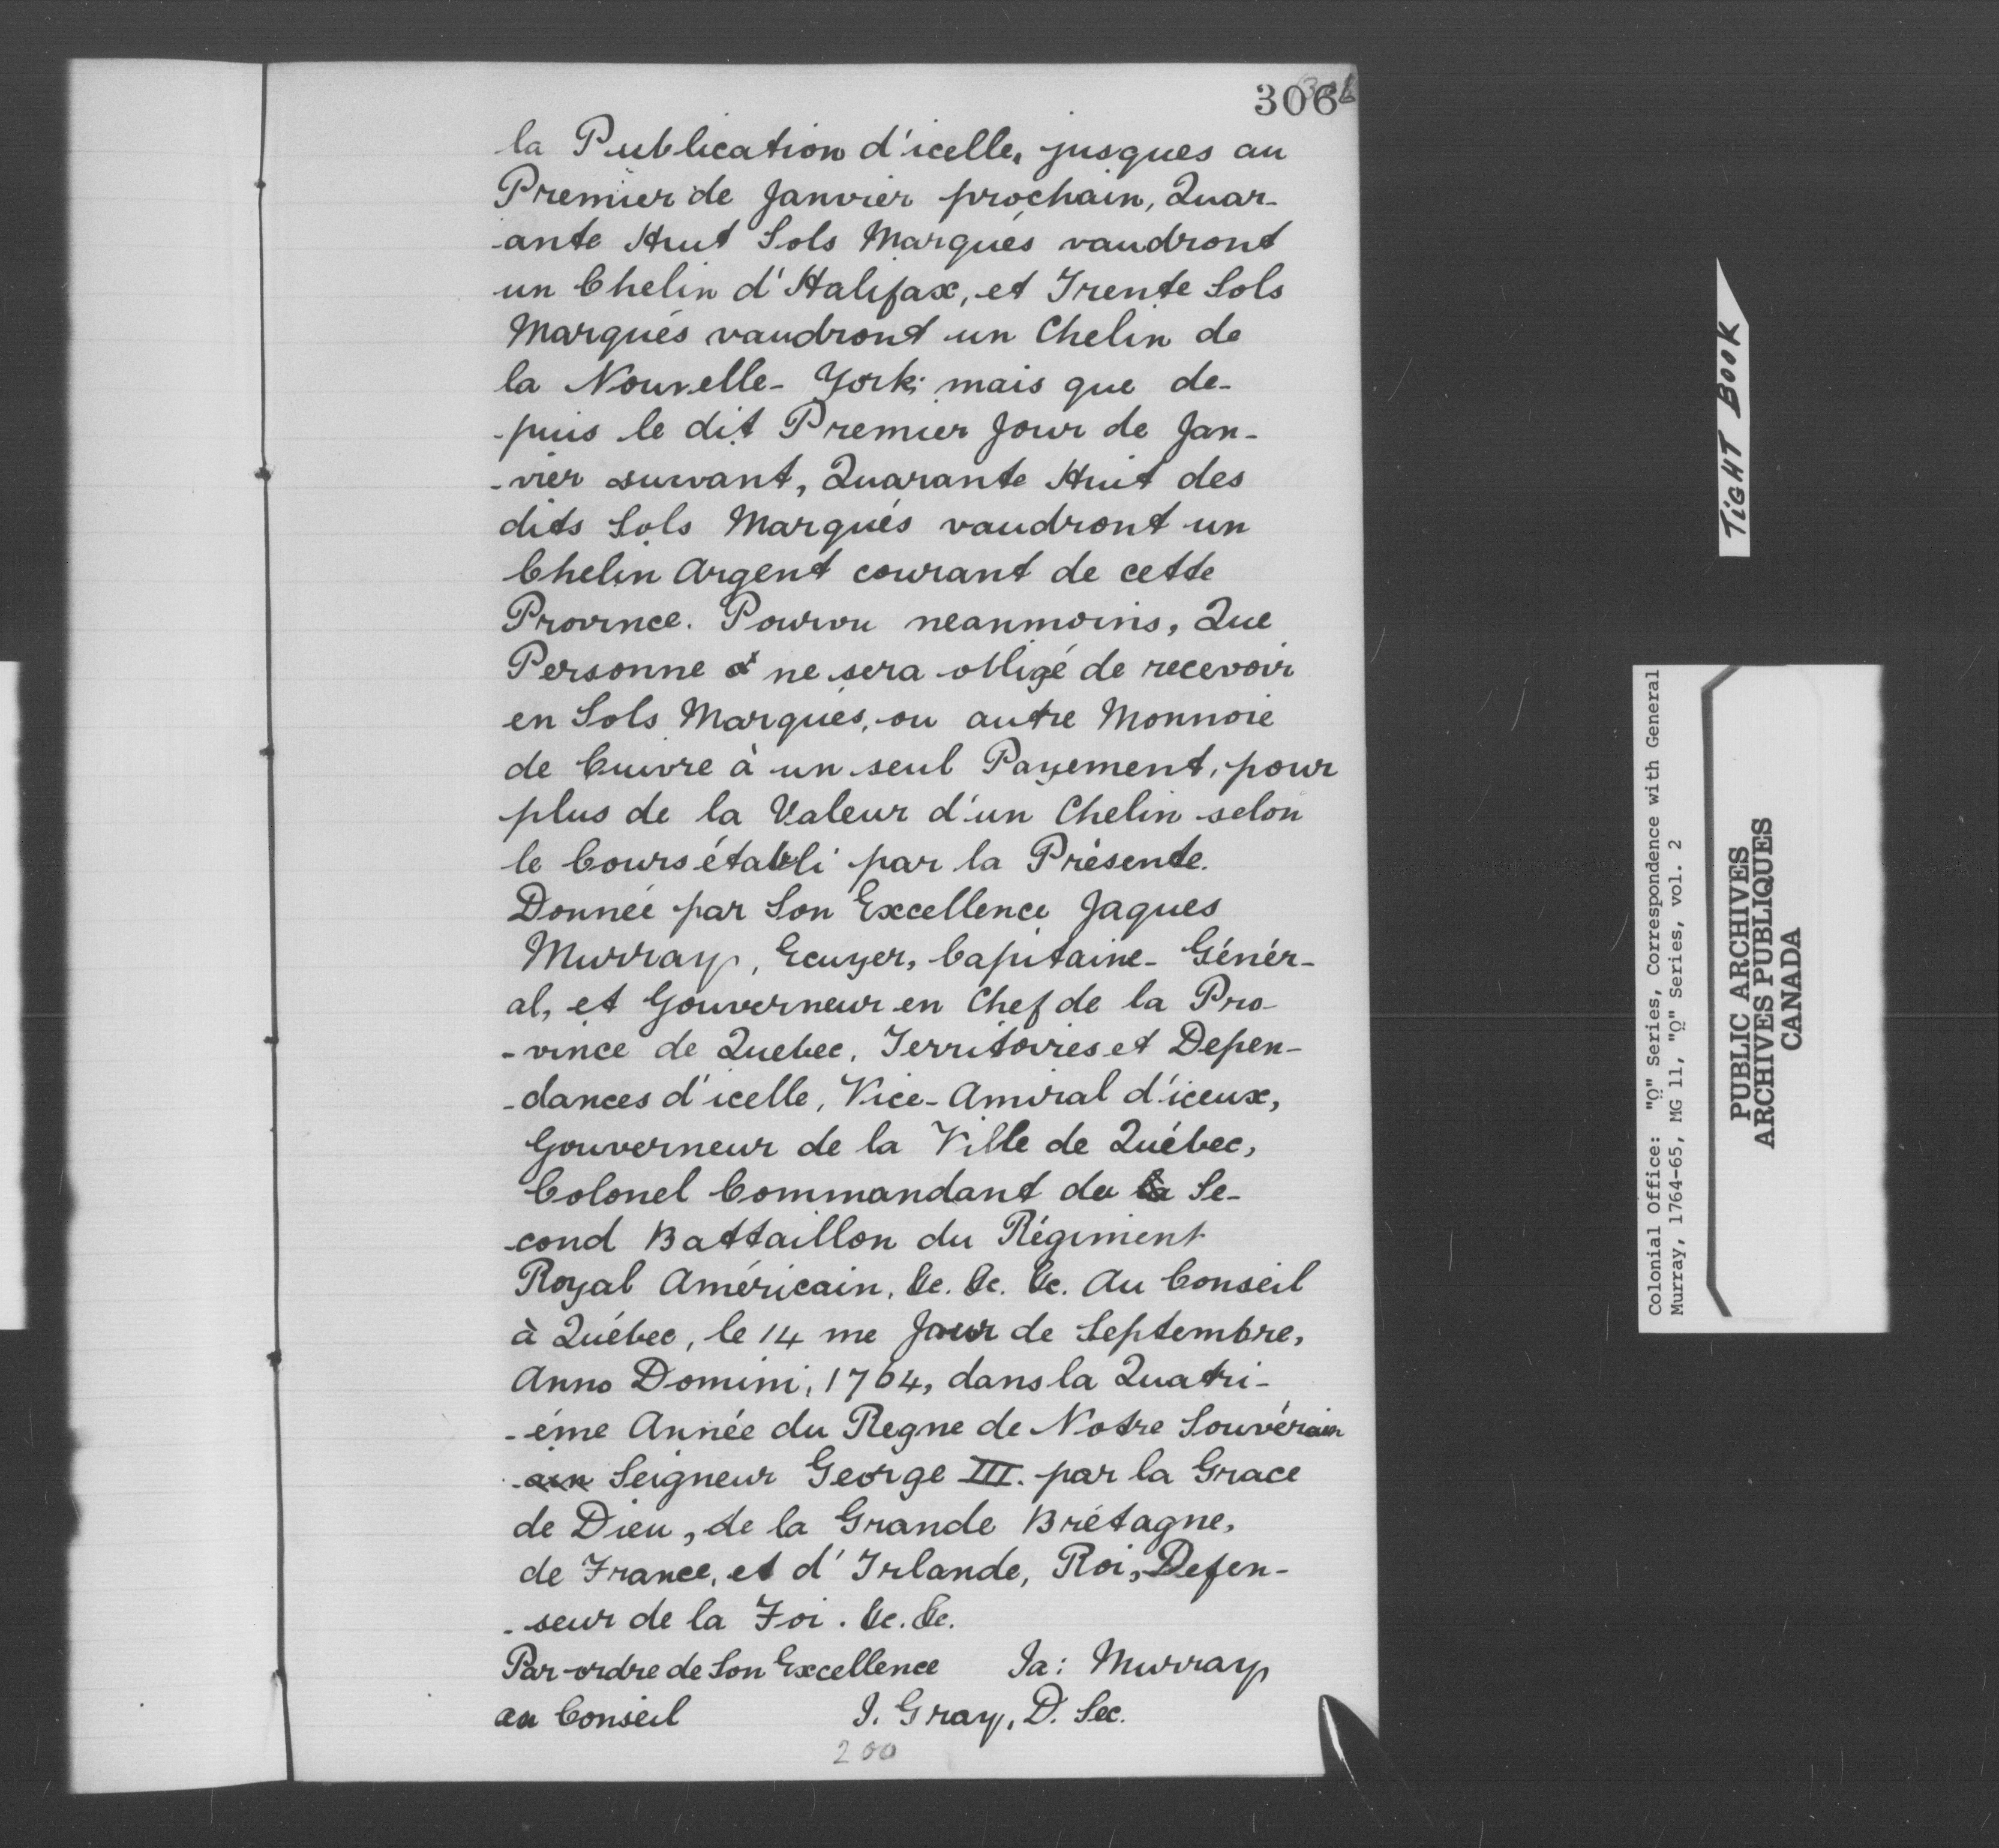 306
la Publication d'icelle, jusques au
Premier de Janvier prochain, Quar-
-ante Huit Sols Marqués vaudront
un Chelin d'Halifax, et Trente Sols
Marqués vaudront un Chelin de
la Nouvelle-York; mais que de-
-puis le dit Premier Jour de Jan-
-vier suivant, Quarante Huit des
dits Sols Marqués vaudront un
Chelin Argent courant de cette
Province. Pourvu neanmoins, Que
Personne ne sera obligé de recevoir
en Sols Marqués, ou autre Monnoie
de Cuivre à un seul Payement, pour
plus de la Valeur d'un Chelin selon
le Cours établi par la Présente.
Donnée par Son Excellence Jaques
Murray, Ecuyer, Capitaine-Génér-
al, et Gouverneur en Chef de la Pro-
-vince de Quebec, Territoires et Depen-
-dances d'icelle, Vice-Amiral d'iceux,
Gouverneur de la Ville de Québec,
Colonel Commandant du Se-
cond Battaillon du Régiment
Royal Américain, &c. &c. &c. Au Conseil
à Québec, le 14 me Jour de Septembre,
Anno Domini, 1764, dans la Quatri-
-éme Année du Regne de Notre Souvérain
-ain Seigneur George III. par la Grace
de Dieu, de la Grande Brétagne,
de France, et d'Irlande, Roi, Defen-
-seur de la Foi. &c. &c.
Par ordre de Son Excellence Ja: Murray
au Conseil J. Gray, D. Sec.
200
TIGHT BOOK
Colonial Office: "Q" Series, Correspondence with General
Murray, 1764-65, MG 11, "Q" Series, vol. 2
PUBLIC ARCHIVES
ARCHIVES PUBLIQUES
CANADA